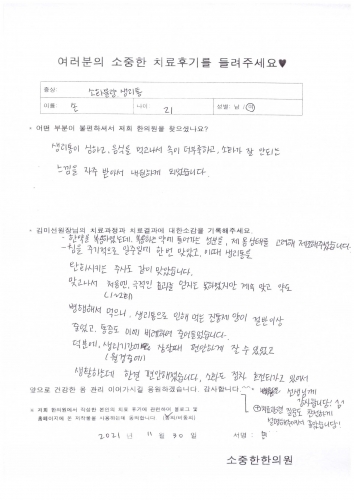 여러분의 소중한 치료후기를 들려주세요♥
증상: 소화불량, 생리통
이름: 손 나이 21 성별: 남 / 여
- 어떤 부분이 불편하셔서 저희 한의원을 찾으셨나요?
생리통이 심하고, 음식을 먹고나서 속이 더부룩하고, 소화가 잘 안되는
느낌을 자주 받아서 내원하게 되었습니다.
- 김미선원장님의 치료과정과 치료결과에 대한소감을 기록해주세요.
- 한약을 복용하였는데, 복용하는 약에 들어가는 성분을, 제 몸상태를 고려해 처방해주셨습니다.
- 침을 주기적으로 일주일에 한 번 맞았고, 이때 생리통을
완화시키는 주사도 같이 맞았습니다.
맞고나서 처음엔, 극적인 효과를 얻지는 못하였지만 계속 맞고 약도
(1~2회)
병행해서 먹으니, 생리통으로 인해 먹는 진통제 양이 절반이상
줄었고, 통증도 이에 비례하여 줄어들었습니다.
덕분에, 생리기간에 잠잘때 편안하게 잘 수 있었고
(월경중에)
생활하는데 한결 편안해졌습니다. 소화도 점차 호전되가고 있어서
앞으로 건강한 몸 관리 이어가시길 응원하겠습니다. 감사합니다.
선생님께
감사합니다!
친절하게
설명해주셔서 좋았습니다!
※ 저희 한의원에서 작성한 본인의 치료 후기에 관련하여 블로그 및
홈페이지에 본 저작물을 사용하는데 동의합니다.
2021 년 11 월 30 일 서명 : 손
소중한한의원